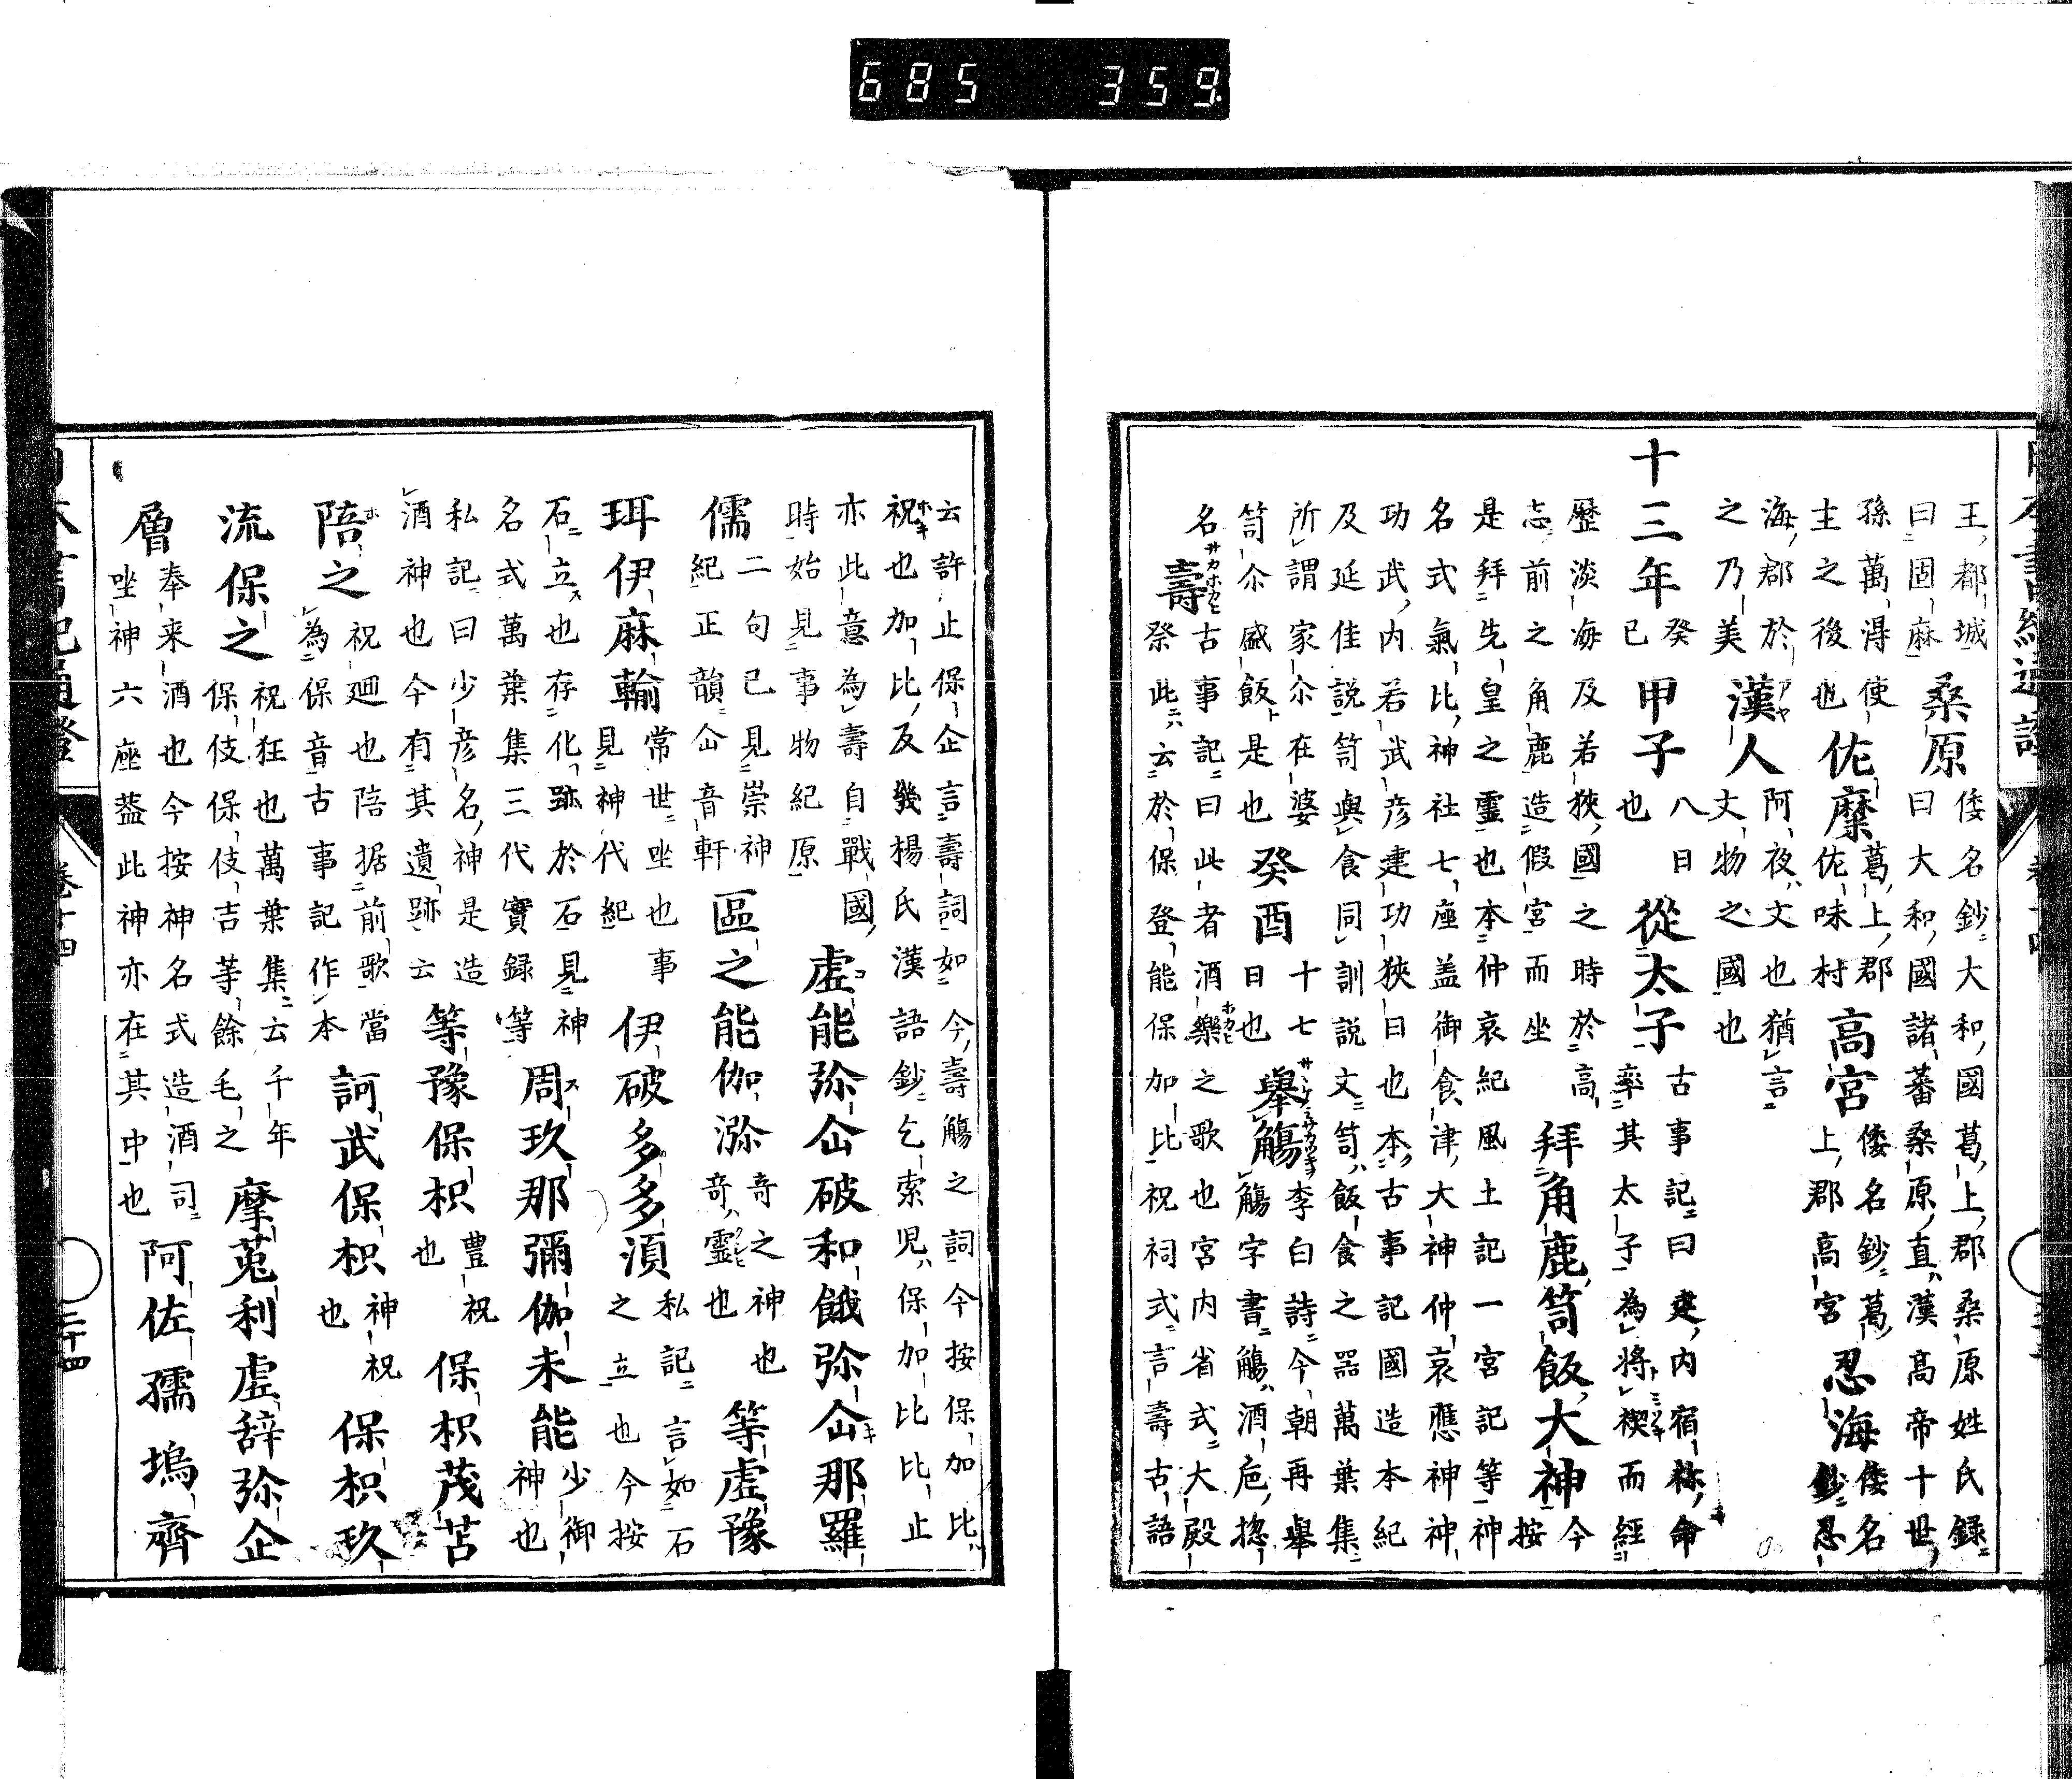 685 359
王都城
曰固麻
桑原
倭名鈔大和國葛上郡桑原姓氏録
曰大和國諸蕃桑原直漢高帝十世
孫萬得使
主之後也
佐糜
葛上郡
佐味村
高宮
倭名鈔葛
上郡高宮
忍海
倭名
鈔忍
海郡於
之乃美
漢人
阿夜文也猶言
文物之國也
十三年
癸
已
甲子
八日
也
從太子
古事記曰建内宿祢命
率其太子為將禊而經
歷淡海及若狹國之時於高
志前之角鹿造假宮而坐
拜角鹿笥飯大神
今
按
是拜先皇之霊也本仲哀紀風土記一宮記等神
名式氣比神社七座盖御食津大神仲哀應神神
功武内若武彦建功狹日也本古事記國造本紀
及延佳説笥與食同訓説文笥飯食之器萬葉集
所謂家尓在婆
笥尓盛飯是也
癸酉
十七
日也
舉觴
李白詩今朝再舉
觴字書觴酒巵捴
名
壽
古事記曰此者酒樂之歌也宮内省式大殿
祭此云於保登能保加比祝祠式言壽古語
云許止保企言壽詞如今壽觴之詞今按保加比
祝也加比反幾楊氏漢語鈔乞索児保加比比止
亦此意為壽自戰國
時始見事物紀原
虚能弥企破和餓弥企那羅
儒
二句已見崇神
紀正韻企音軒
區之能伽瀰
奇之神也
奇靈也
等虚豫
珥伊麻輸
常世坐也事
見神代紀
伊破多多湏
私記言如石
之立也今按
石立也存化跡於石見神
名式萬葉集三代實録等
周玖那彌伽未能
少御
神也
私記曰少彦名神是造
酒神也今有其遺跡云
等豫保枳
豊祝
也
保枳茂苫
陪之
祝廻也陪据前歌當
為保音古事記作本
訶武保枳
神祝
也
保枳玖
流保之
祝狂也萬葉集云千年
保伎保伎吉等餘毛之
摩菟利虚辞弥企
層
奉来酒也今按神名式造酒司
唑神六座葢此神亦在其中也
阿佐孺塢齊
卷十四
二十四